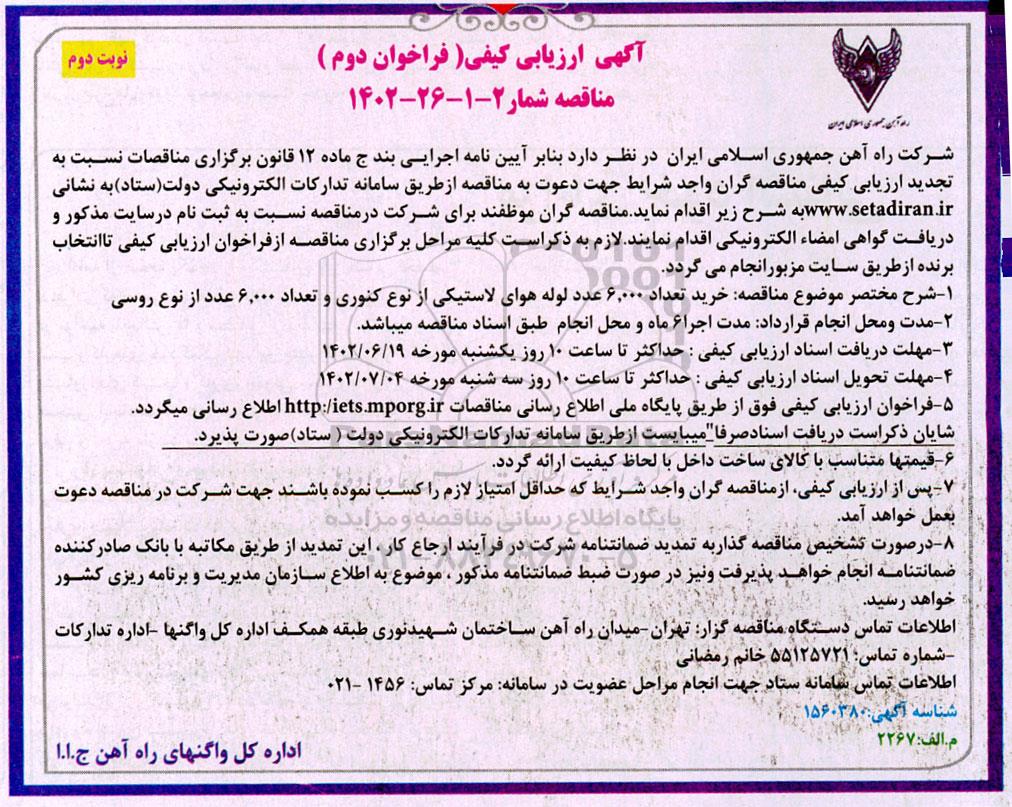 آگهی ارزیابی کیفی( فراخوان دوم )
نوبت دوم
مناقصه شمار۲-۱-۲۶-۱۴۰۲
راه آهن جمهوری اسلامی ایران
شرکت راه آهن جمهوری اسلامی ایران در نظر دارد بنابر آیین نامه اجرایی بند ج ماده ۱۲ قانون برگزاری مناقصات نسبت به
تجدید ارزیابی کیفی مناقصه گران واجد شرایط جهت دعوت به مناقصه ازطریق سامانه تدارکات الکترونیکی دولت(ستاد)به نشانی
www.setadiran.irبه شرح زیر اقدام نماید.مناقصه گران موظفند برای شرکت درمناقصه نسبت به ثبت نام درسایت مذکور و
دریافت گواهی امضاء الکترونیکی اقدام نمایند.لازم به ذکراست کلیه مراحل برگزاری مناقصه ازفراخوان ارزیابی کیفی تاانتخاب
برنده ازطریق سایت مزبورانجام می گردد.
۱-شرح مختصر موضوع مناقصه: خرید تعداد ۶,۰۰۰ عدد لوله هوای لاستیکی از نوع کنوری و تعداد ۶,۰۰۰ عدد از نوع روسی
۲-مدت ومحل انجام قرارداد: مدت اجرا۶ ماه و محل انجام طبق اسناد مناقصه میباشد.
۳-مهلت دریافت اسناد ارزیابی کیفی : حداکثر تا ساعت ۱۰ روز یکشنبه مورخه ۱۴۰۲/۰۶/۱۹
۴-مهلت تحویل اسناد ارزیابی کیفی : حداکثر تا ساعت ۱۰ روز سه شنبه مورخه ۱۴۰۲/۰۷/۰۴
۵-فراخوان ارزیابی کیفی فوق از طریق پایگاه ملی اطلاع رسانی مناقصات http:/iets.mporg.ir اطلاع رسانی میگردد.
شایان ذکراست دریافت اسنادصرفا"میبایست ازطریق سامانه تدارکات الکترونیکی دولت ( ستاد)صورت پذیرد.
۶-قیمتها متناسب با کالای ساخت داخل با لحاظ کیفیت ارائه گردد.
۷-پس از ارزیابی کیفی، ازمناقصه گران واجد شرایط که حداقل امتیاز لازم را کسب نموده باشند جهت شرکت در مناقصه دعوت
بعمل خواهد آمد.
۸-درصورت تشخیص مناقصه گذاربه تمدید ضمانتنامه شرکت در فرآیند ارجاع کار ، این تمدید از طریق مکاتبه با بانک صادرکننده
ضمانتنامه انجام خواهد پذیرفت ونیز در صورت ضبط ضمانتنامه مذکور ، موضوع به اطلاع سازمان مدیریت و برنامه ریزی کشور
خواهد رسید.
اطلاعات تماس دستگاه مناقصه گزار: تهران-میدان راه آهن ساختمان شهیدنوری طبقه همکف اداره کل واگنها -اداره تدارکات
-شماره تماس: ۵۵۱۲۵۷۲۱ خانم رمضانی
اطلاعات تماس سامانه ستاد جهت انجام مراحل عضویت در سامانه: مرکز تماس: ۱۴۵۶ -۰۲۱
شناسه آگهی:۱۵۶۰۳۸۰
م.الف:۲۲۶۷
اداره کل واگنهای راه آهن ج.ا.ا
پایگاه اطلاع رسانی مناقصه و مزایده